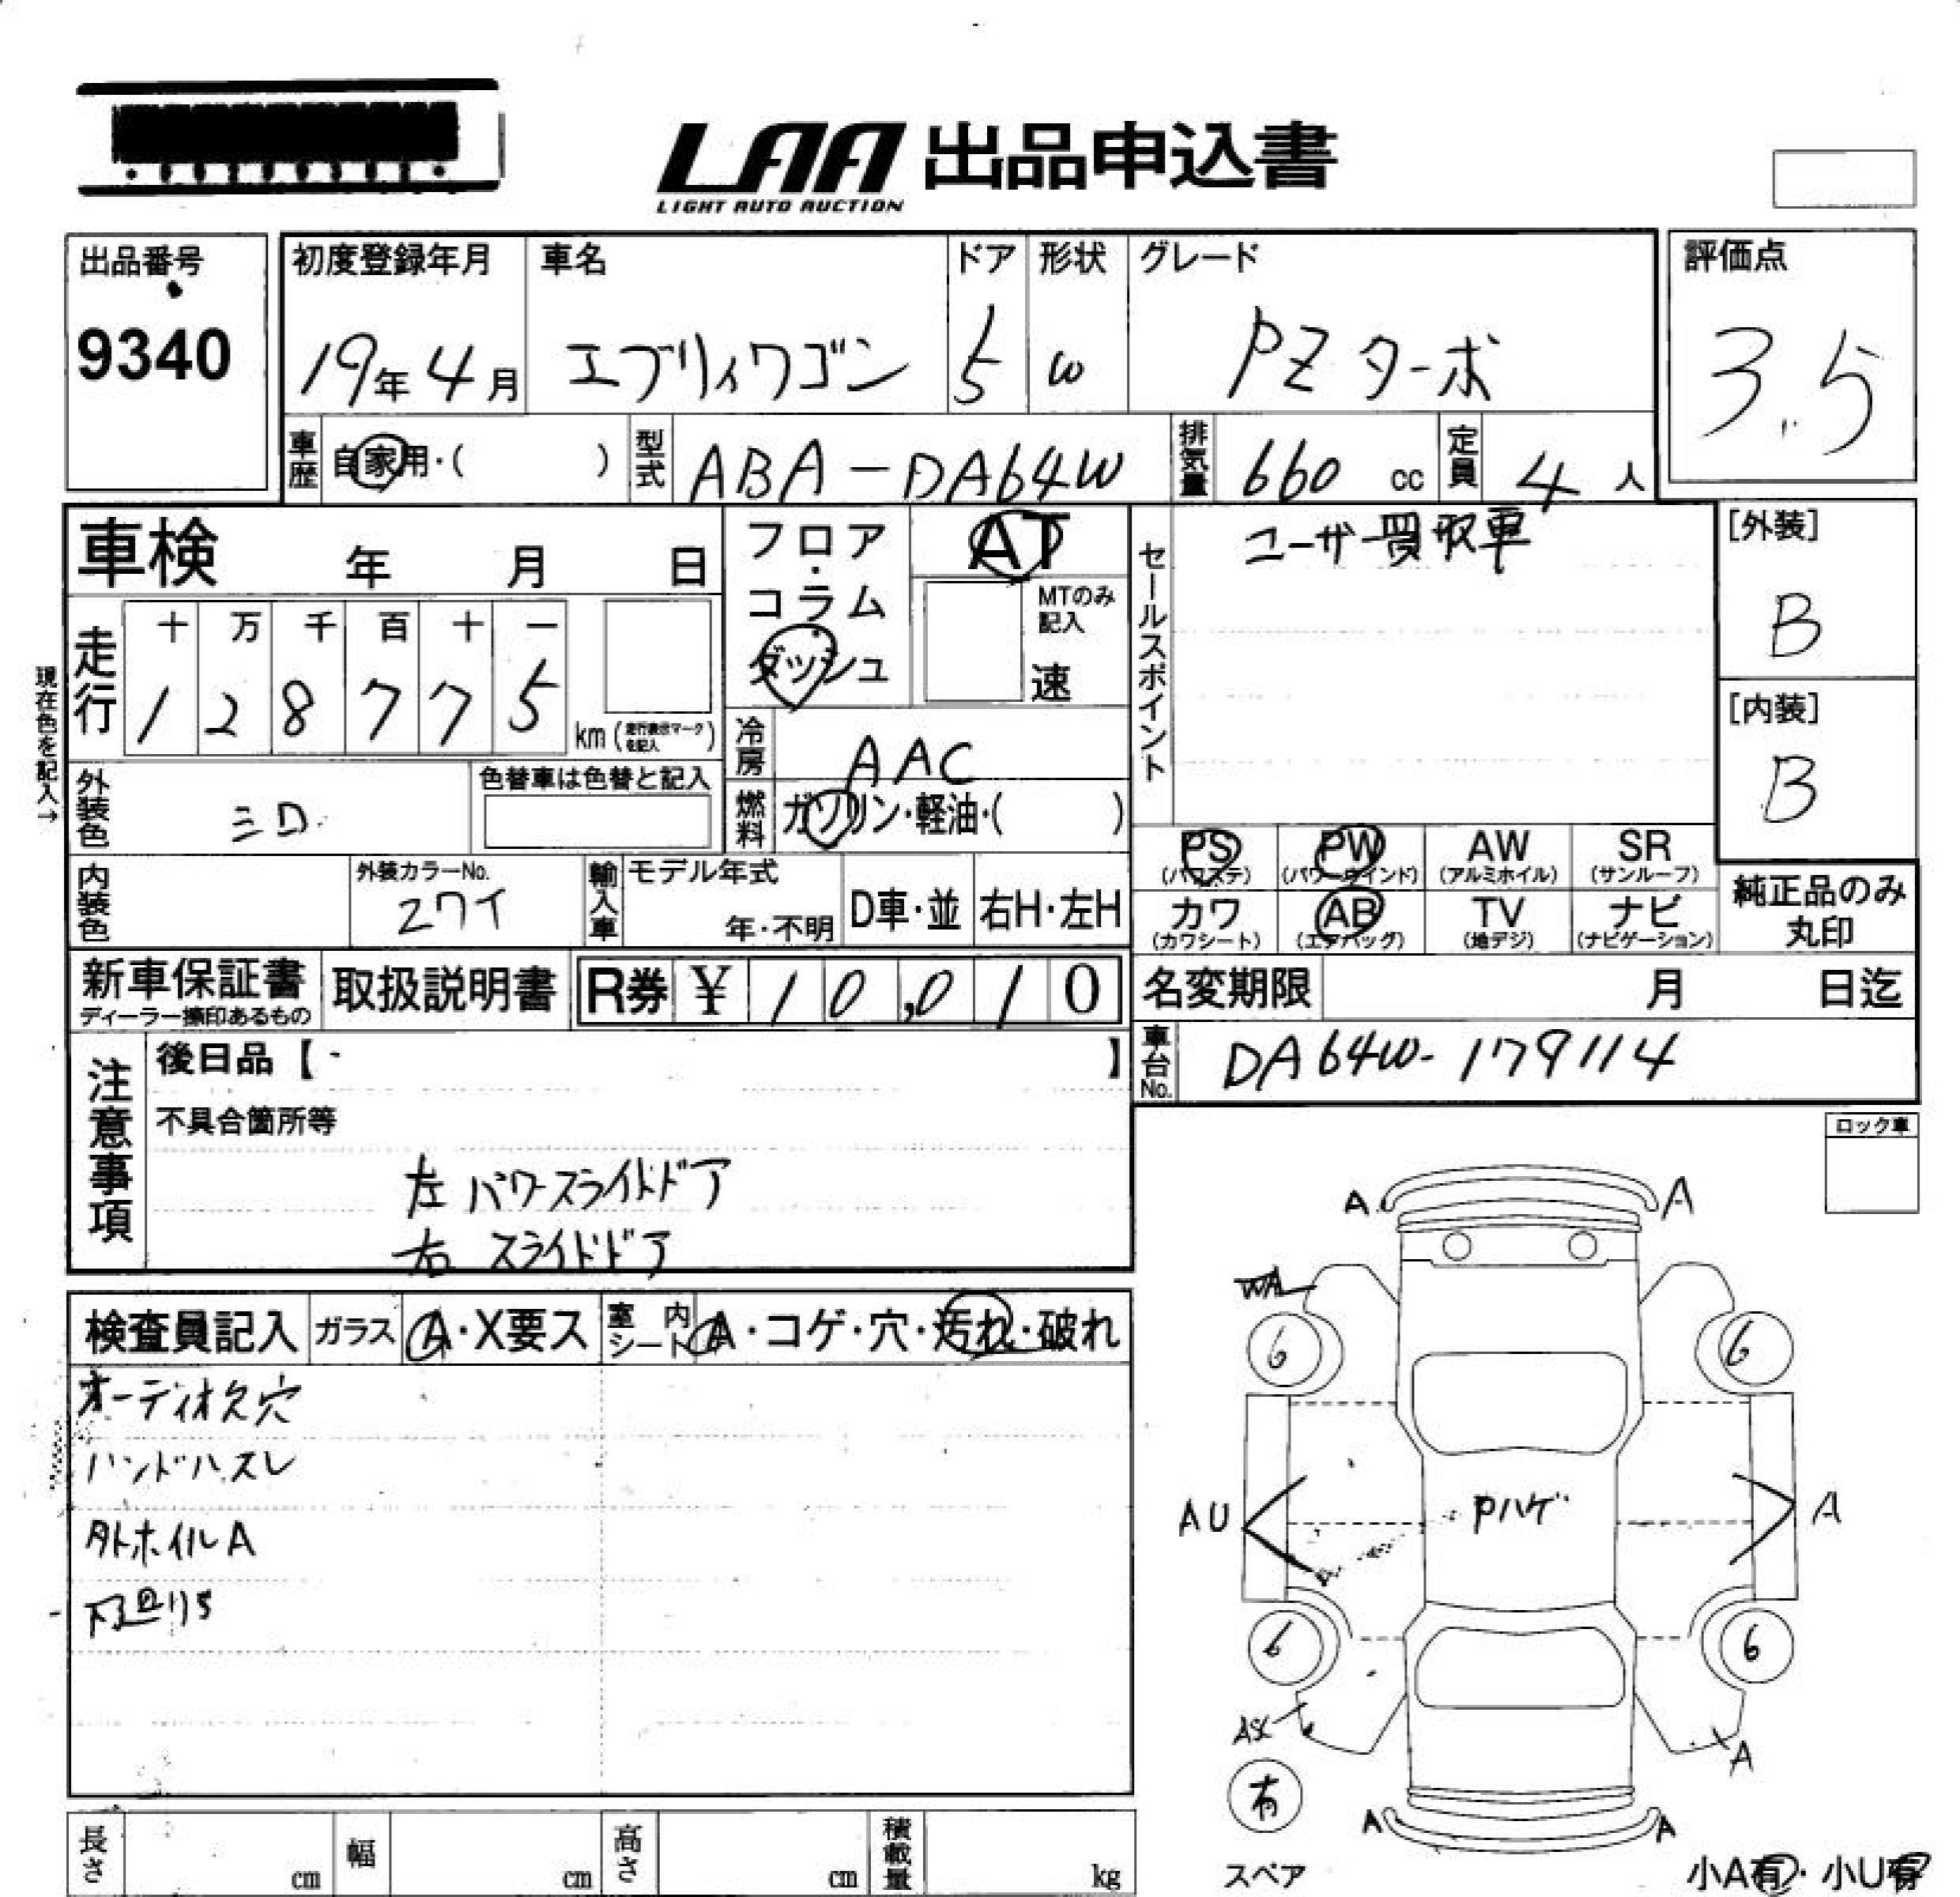 LAA 出品申込書
LIGHT AUTO AUCTION
出品番号
9340
初度登録年月
19年4月
車名
エブリィワゴン
ドア
5
形状
W
グレード
PZ ターボ
評価点
3.5
車歴 自家用・( )
型式 ABA-DA64W
排気量 660 cc
定員 4 人
車検 年 月 日
フロア・コラム・ダッシュ
AT
MTのみ記入
速
セールスポイント
ユーザー買取車
[外装]
B
[内装]
B
現在色を記入→
走行
十 万 千 百 十 一
1 2 8 7 7 5
km (走行表示マークを記入)
冷房 AAC
燃料 ガソリン・軽油・( )
外装色
色替車は色替と記入
内装色
外装カラーNo.
輸入車
モデル年式
年・不明
D車・並
右H・左H
PS (パワステ)
PW (パワーウインド)
AW (アルミホイル)
SR (サンルーフ)
カワ (カワシート)
AB (エアバッグ)
TV (地デジ)
ナビ (ナビゲーション)
純正品のみ丸印
新車保証書
ディーラー捺印あるもの
取扱説明書
R券 ¥ 10,010
名変期限 月 日迄
車台No. DA64W-179114
注意事項
後日品【 】
不具合箇所等
左 パワースライドドア
右 スライドドア
ロック車
検査員記入
ガラス A・X要ス
室内シート A・コゲ・穴・汚れ・破れ
オーディオ欠穴
ハンドハスレ
タトホイルA
下廻りS
A A
6 6
AU
Pハゲ
A
6 6
A
有
A A
スペア
小A有・小U有
長さ cm
幅 cm
高さ cm
積載量 kg